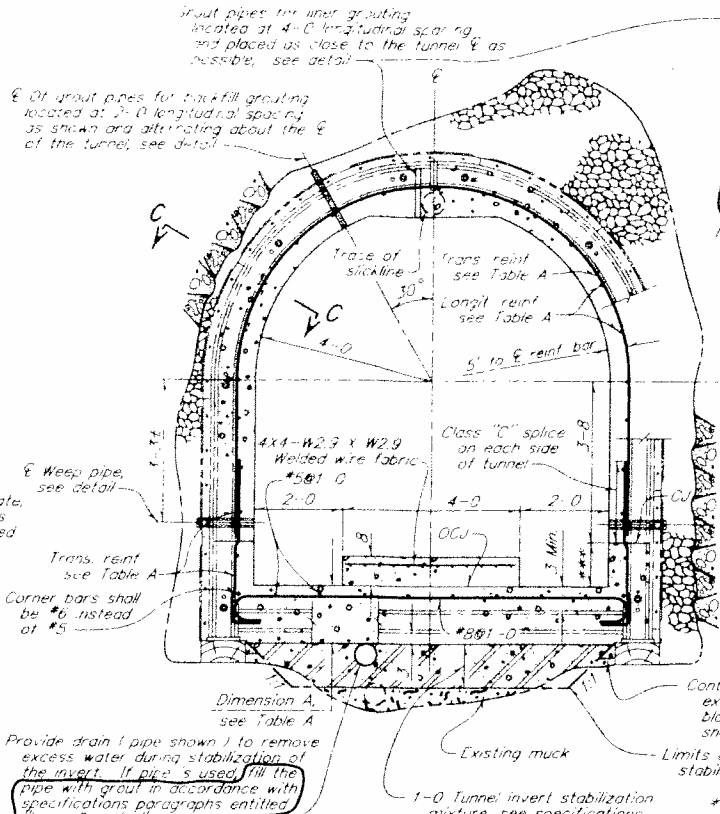 Grout pipes for liner grouting
located at 4-0 longitudinal spacing
and placed as close to the tunnel ℄ as
possible, see detail
℄
℄ Of grout pipes for backfill grouting
located at 2-0 longitudinal spacing
as shown and alternating about the ℄
of the tunnel, see detail
C
Trace of
slickline
Trans reint
see Table A
30°
Longit reinf
see Table A
C
4-0
5" to ℄ reinf bar
4x4-W2.9 x W2.9
Welded wire fabric
#5@1-0
Class "C" splice
on each side
of tunnel
3-8
℄ Weep pipe,
see detail
2-0
4-0
2-0
CJ
8
OCJ
3 Min.
***
Trans. reint
see Table A
Corner bars shall
be #6 instead
of #5
#8@1-0
Dimension A,
see Table A
Provide drain (pipe shown) to remove
excess water during stabilization of
the invert. If pipe is used, fill the
pipe with grout in accordance with
specifications paragraphs entitled
Existing muck
Limits
stabil
1-0 Tunnel invert stabilization
mixture, see specifications
*